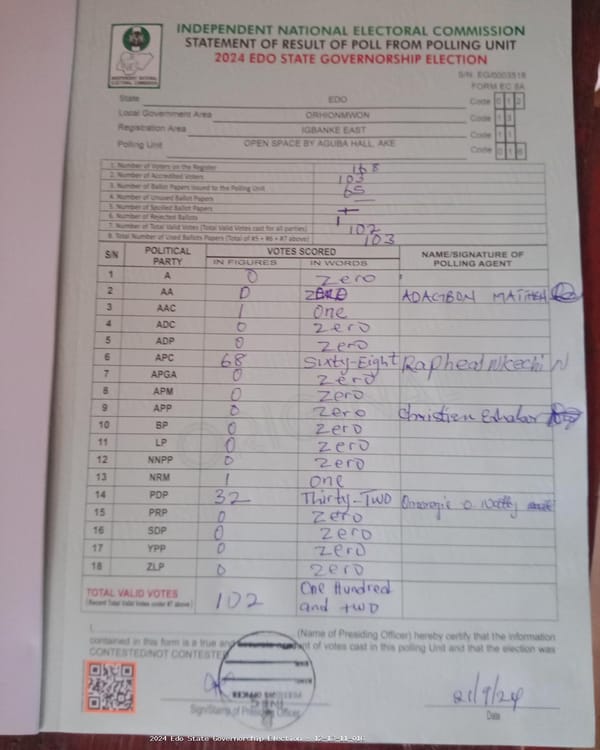 INDEPENDENT NATIONAL ELECTORAL COMMISSION
STATEMENT OF RESULT OF POLL FROM POLLING UNIT
2024 EDO STATE GOVERNORSHIP ELECTION
INDEPENDENT NATIONAL ELECTORAL COMMISSION
S/N: EG/0003518
FORM EC 8A
State EDO Code 0 1 2
Local Government Area ORHIONMWON Code 1 3
Registration Area IGBANKE EAST Code 1 1
Polling Unit OPEN SPACE BY AGUBA HALL, AKE Code 0 1 6
1. Number of Voters on the Register 168
2. Number of Accredited Voters 103
3. Number of Ballot Papers Issued to the Polling Unit
4. Number of Unused Ballot Papers 65
5. Number of Spoiled Ballot Papers
6. Number of Rejected Ballots 1
7. Number of Total Valid Votes (Total Valid Votes cast for all parties) 102
8. Total Number of Used Ballots Papers (Total of #5 + #6 + #7 above) 103
S/N POLITICAL PARTY VOTES SCORED NAME/SIGNATURE OF POLLING AGENT
IN FIGURES IN WORDS
1 A 0 Zero
2 AA 0 ZERO
3 AAC 1 One
4 ADC 0 Zero
5 ADP 0 Zero
6 APC 68 Sixty-Eight Rapheal Nkechi N
7 APGA 0 Zero
8 APM 0 Zero
9 APP 0 Zero Christien
10 BP 0 Zero
11 LP 0 Zero
12 NNPP 0 Zero
13 NRM 1 One
14 PDP 32 Thirty-Two
15 PRP 0 Zero
16 SDP 0 Zero
17 YPP 0 Zero
18 ZLP 0 Zero
TOTAL VALID VOTES 102 One Hundred
(Record Total Valid Votes under #7 above) and Two
I, (Name of Presiding Officer) hereby certify that the information
contained in this form is a true and of votes cast in this polling Unit and that the election was
CONTESTED/NOT CONTESTED
21/9/24
Sign/Stamp of Presiding Officer Date
2024 Edo State Governorship Election -